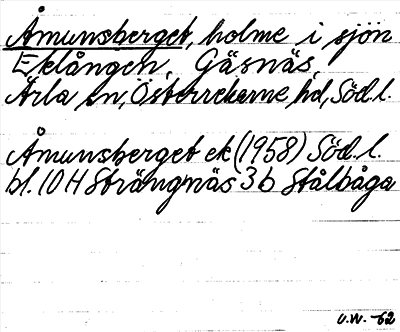 Åmunsberget, holme i sjön
Eklången, Gäsnäs,
Ärla sn, Österrekarne hd, Söd.l.
Åmunsberget ek (1958) Söd.l.
bl. 10 H Strängnäs 3 b Stålbåga
U.W. -62